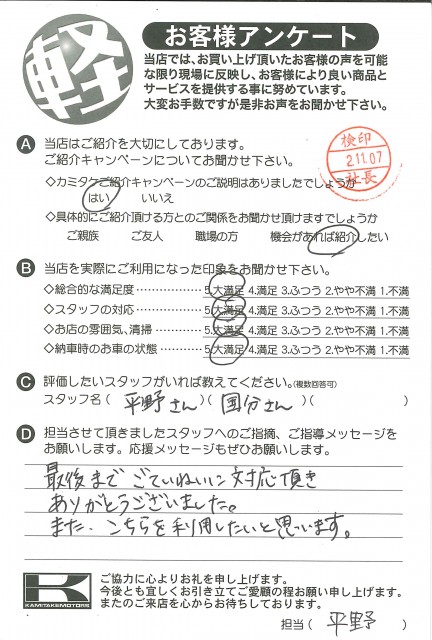 軽
お客様アンケート
当店では、お買い上げ頂いたお客様の声を可能
な限り現場に反映し、お客様により良い商品と
サービスを提供する事に努めています。
大変お手数ですが是非お声をお聞かせ下さい。
A 当店はご紹介を大切にしております。
ご紹介キャンペーンについてお聞かせ下さい。
検印
2.11.07
社長
◇カミタケご紹介キャンペーンのご説明はありましたでしょうか
はい いいえ
◇具体的にご紹介頂ける方とのご関係をお聞かせ頂けますでしょうか
ご親族 ご友人 職場の方 機会があれば紹介したい
B 当店を実際にご利用になった印象をお聞かせ下さい。
◇総合的な満足度 ……………… 5.大満足 4.満足 3.ふつう 2.やや不満 1.不満
◇スタッフの対応 ……………… 5.大満足 4.満足 3.ふつう 2.やや不満 1.不満
◇お店の雰囲気、清掃 ………… 5.大満足 4.満足 3.ふつう 2.やや不満 1.不満
◇納車時のお車の状態 ………… 5.大満足 4.満足 3.ふつう 2.やや不満 1.不満
C 評価したいスタッフがいれば教えてください。(複数回答可)
スタッフ名 ( 平野さん )( 国分さん )( )
D 担当させて頂きましたスタッフへのご指摘、ご指導メッセージを
お願いします。応援メッセージもぜひお願いします。
最後まで ごていねいに対応頂き
ありがとうございました。
また、こちらを利用したいと思います。
K
KAMITAKEMOTORS
ご協力に心よりお礼を申し上げます。
今後とも宜しくお引き立てご愛顧の程お願い申し上げます。
またのご来店を心からお待ちしております。
担当 ( 平野 )